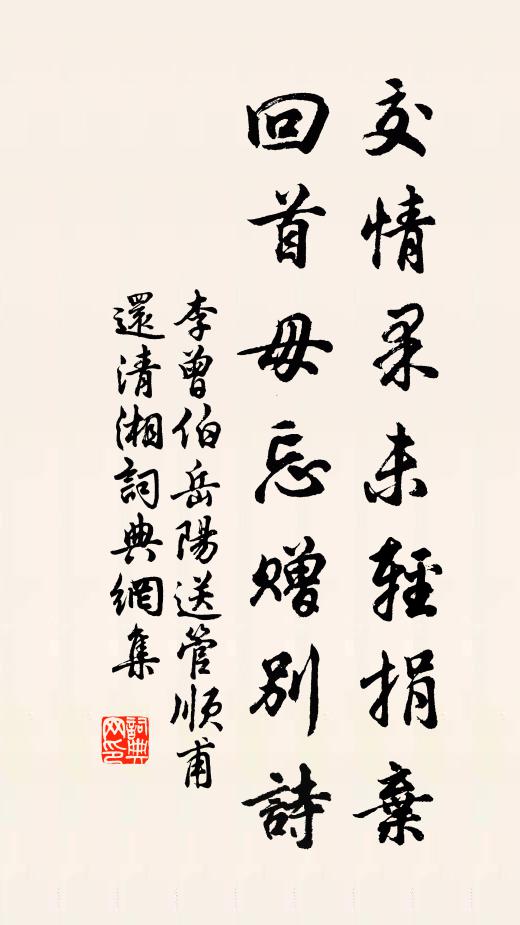 交情果未輕捐棄
回首毋忘贈別詩
李曾伯岳陽送管順甫
還清湘詞典網集
詞典网印